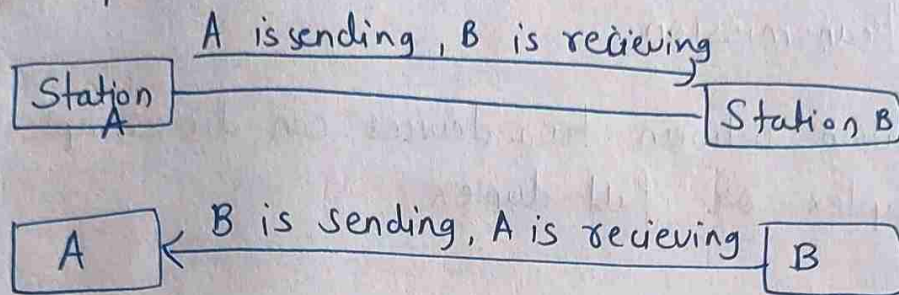 A is sending, B is recieving
Station
A
Station B
B is sending, A is recieving
A
B